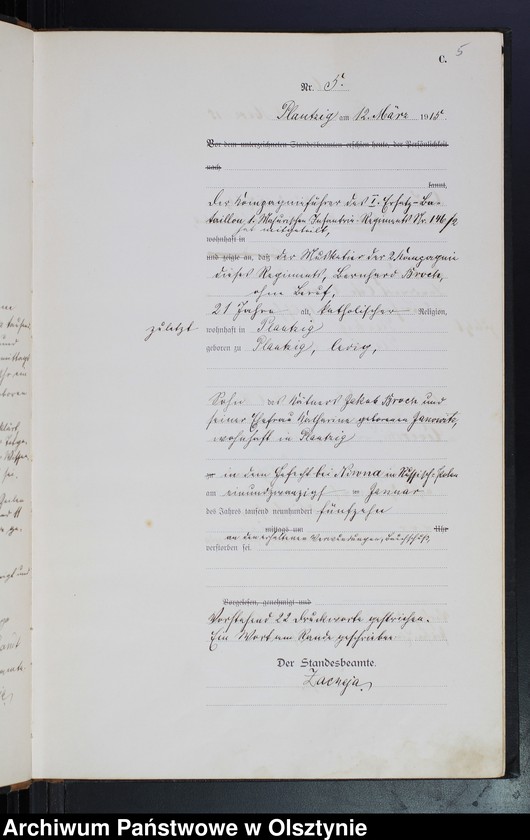 C. 5
Nr. 5.
Plautzig am 12. März 1915.
Vor dem unterzeichneten Standesbeamten erschien heute, der Persönlichkeit
nach
kannt,
Der Kompagnieführer des I. Ersatz-Ba-
taillon 1. Masurischen Infanterie-Regiments Nr. 146
hat mitgeteilt,
wohnhaft in
und zeigte an, daß der Musketier der 2 Kompagnie
dieses Regiments, Bernhard Broch,
ohne Beruf,
21 Jahre alt, katholischer Religion,
zuletzt wohnhaft in Plautzig
geboren zu Plautzig, ledig,
Sohn des Kätners Jakob Broch und
seiner Ehefrau Katharina geborenen
wohnhaft in Plautzig
in dem Gefecht bei in Russisch-Polen
am einundzwanzigst Januar
des Jahres tausend neunhundert fünfzehn
mittags um Uhr
an den erhaltenen Verwundungen,
verstorben sei.
Vorgelesen, genehmigt und
Vorstehend 22 Druckworte gestrichen.
Ein Wort am Rande geschrieben
Der Standesbeamte.
Zacheja
Archiwum Państwowe w Olsztynie